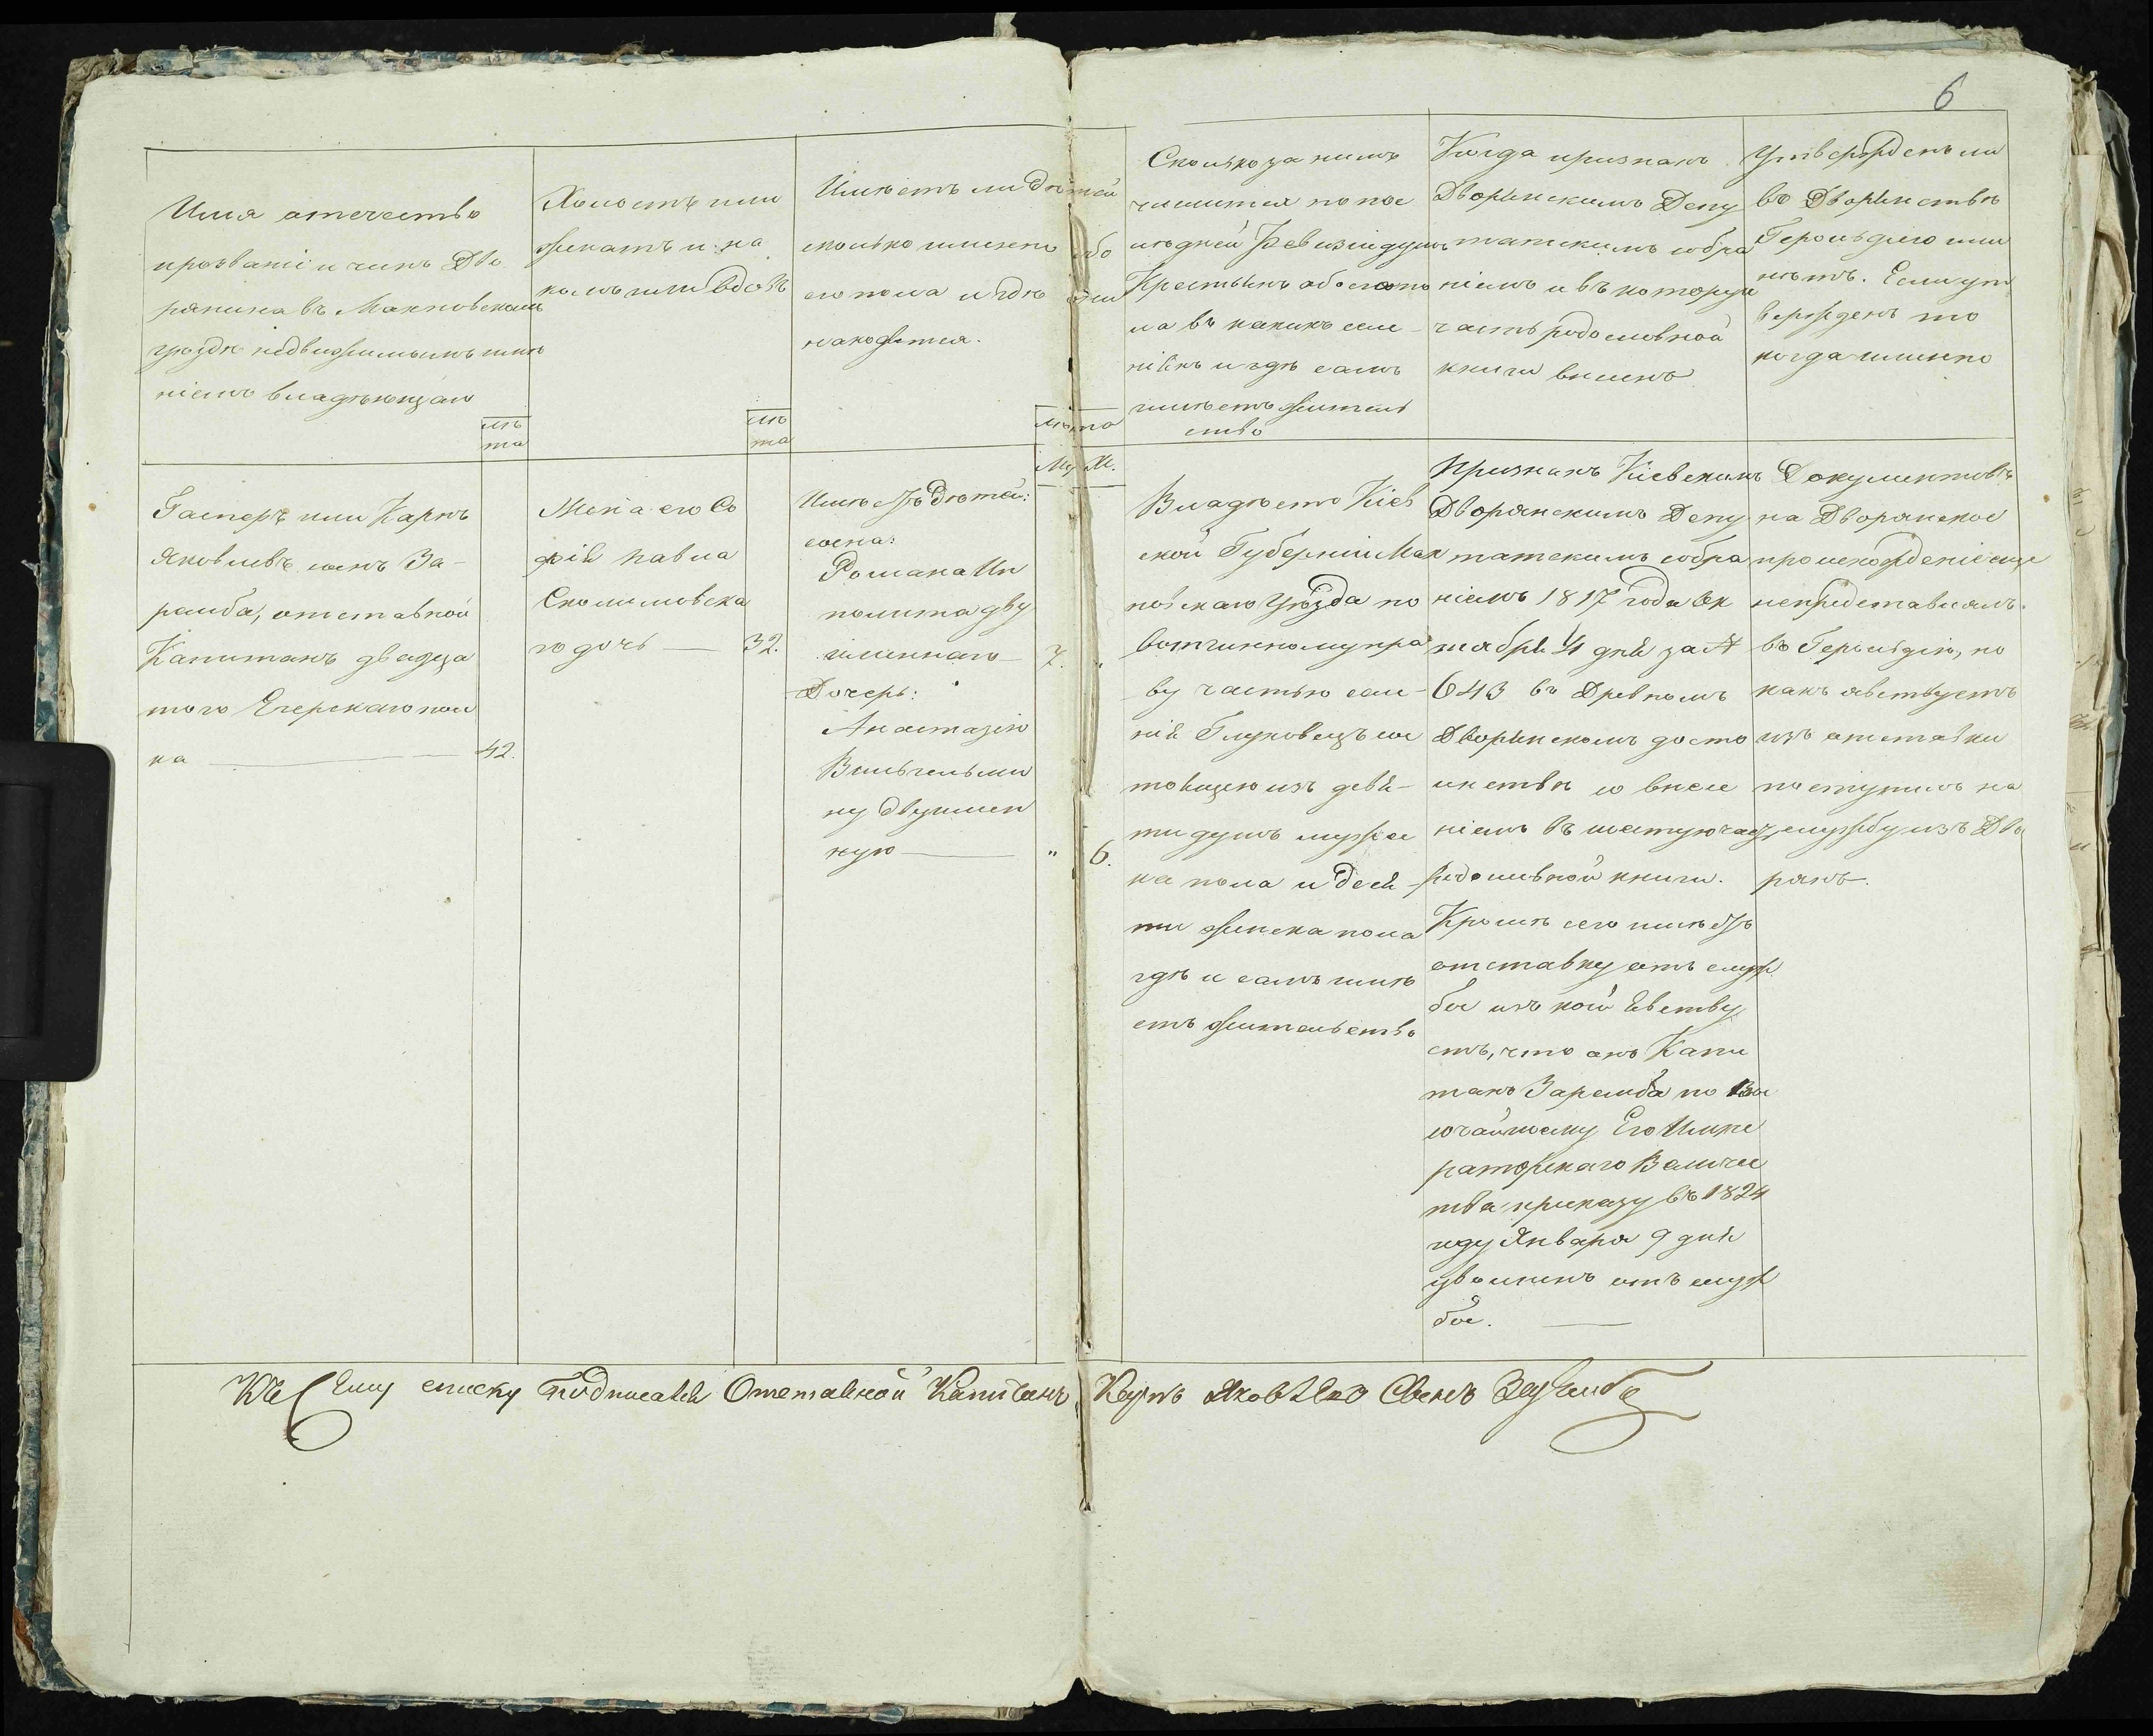 6
Имя отечество
прозваніе и чинъ Дво
рянина въ Махновскомъ
уѣздѣ недвижимымъ имѣ
ніемъ владѣющаго
лѣ
та
Холостъ или
женатъ и на
комъ или вдовъ
лѣ
та
Имѣетъ ли дѣтей
сколько именно обо
его пола и гдѣ они
находятся.
лѣта
Му. Ж.
Сколько за нимъ
числится по пос
лѣдней Ревизіи душъ
Крестьянъ обоего по
ла въ какихъ селе
ніяхъ и гдѣ самъ
имѣетъ житель
ство
Когда признанъ
Дворянскимъ Депу
татскимъ собра
ніемъ и въ которую
часть родословной
книги внесенъ
Утвержденъ ли
въ Дворянствѣ
Герольдіею или
нѣтъ. Если ут
вержденъ то
когда имянно
Гасперъ или Карпъ
Яковлевъ сынъ За-
ремба, отставной
Капитанъ двадца
того Егерскаго пол
ка — 42.
Жена его Со
фія Павла
Сколимовска
го дочь — 32.
Имѣетъ дѣтей:
сына:
Романа Ип
полита дву
имяннаго — 7. "
Дочерь:
Анастазію
Вильгельми
ну двуимен
ную — " 6.
Владѣетъ Кіев
ской Губерніи Мах
новскаго Уѣзда по
вотчинному пра
ву частью селе-
нія Глуховецъ сос
тоящею изъ девя-
ти душъ мужес
ка пола и деся-
ти женска пола
гдѣ и самъ имѣ
етъ жительство
Признанъ Кіевскимъ
Дворянскимъ Депу
татскимъ собра
ніемъ 1817 года Ок
тября 4 дня за №
643 въ Древномъ
Дворянскомъ досто
инствѣ со внесе
ніемъ въ шестую часть
родословной книги.
Кромѣ сего имѣетъ
отставку отъ служ
бы изъ коей явству
етъ, что онъ Капи
танъ Заремба по Вы
сочайшему Его Импе
раторскаго Величес
тва приказу въ 1824
году Января 9 дня
уволенъ отъ служ
бы. —
Документовъ
на Дворянское
происхожденіе еще
непредставлялъ
въ Герольдію, но
какъ явствуетъ
изъ отставки
поступилъ на
службу изъ Дво
рянъ.
Къ Сему списку подписался Отставной Капитанъ Карпъ Яковлевъ Сынъ Заремба